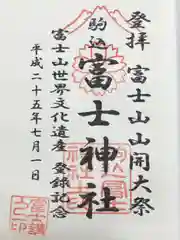 登拝 富士山山開大祭
駒込
富士神社
富士山世界文化遺産 登録記念
平成二十五年七月一日